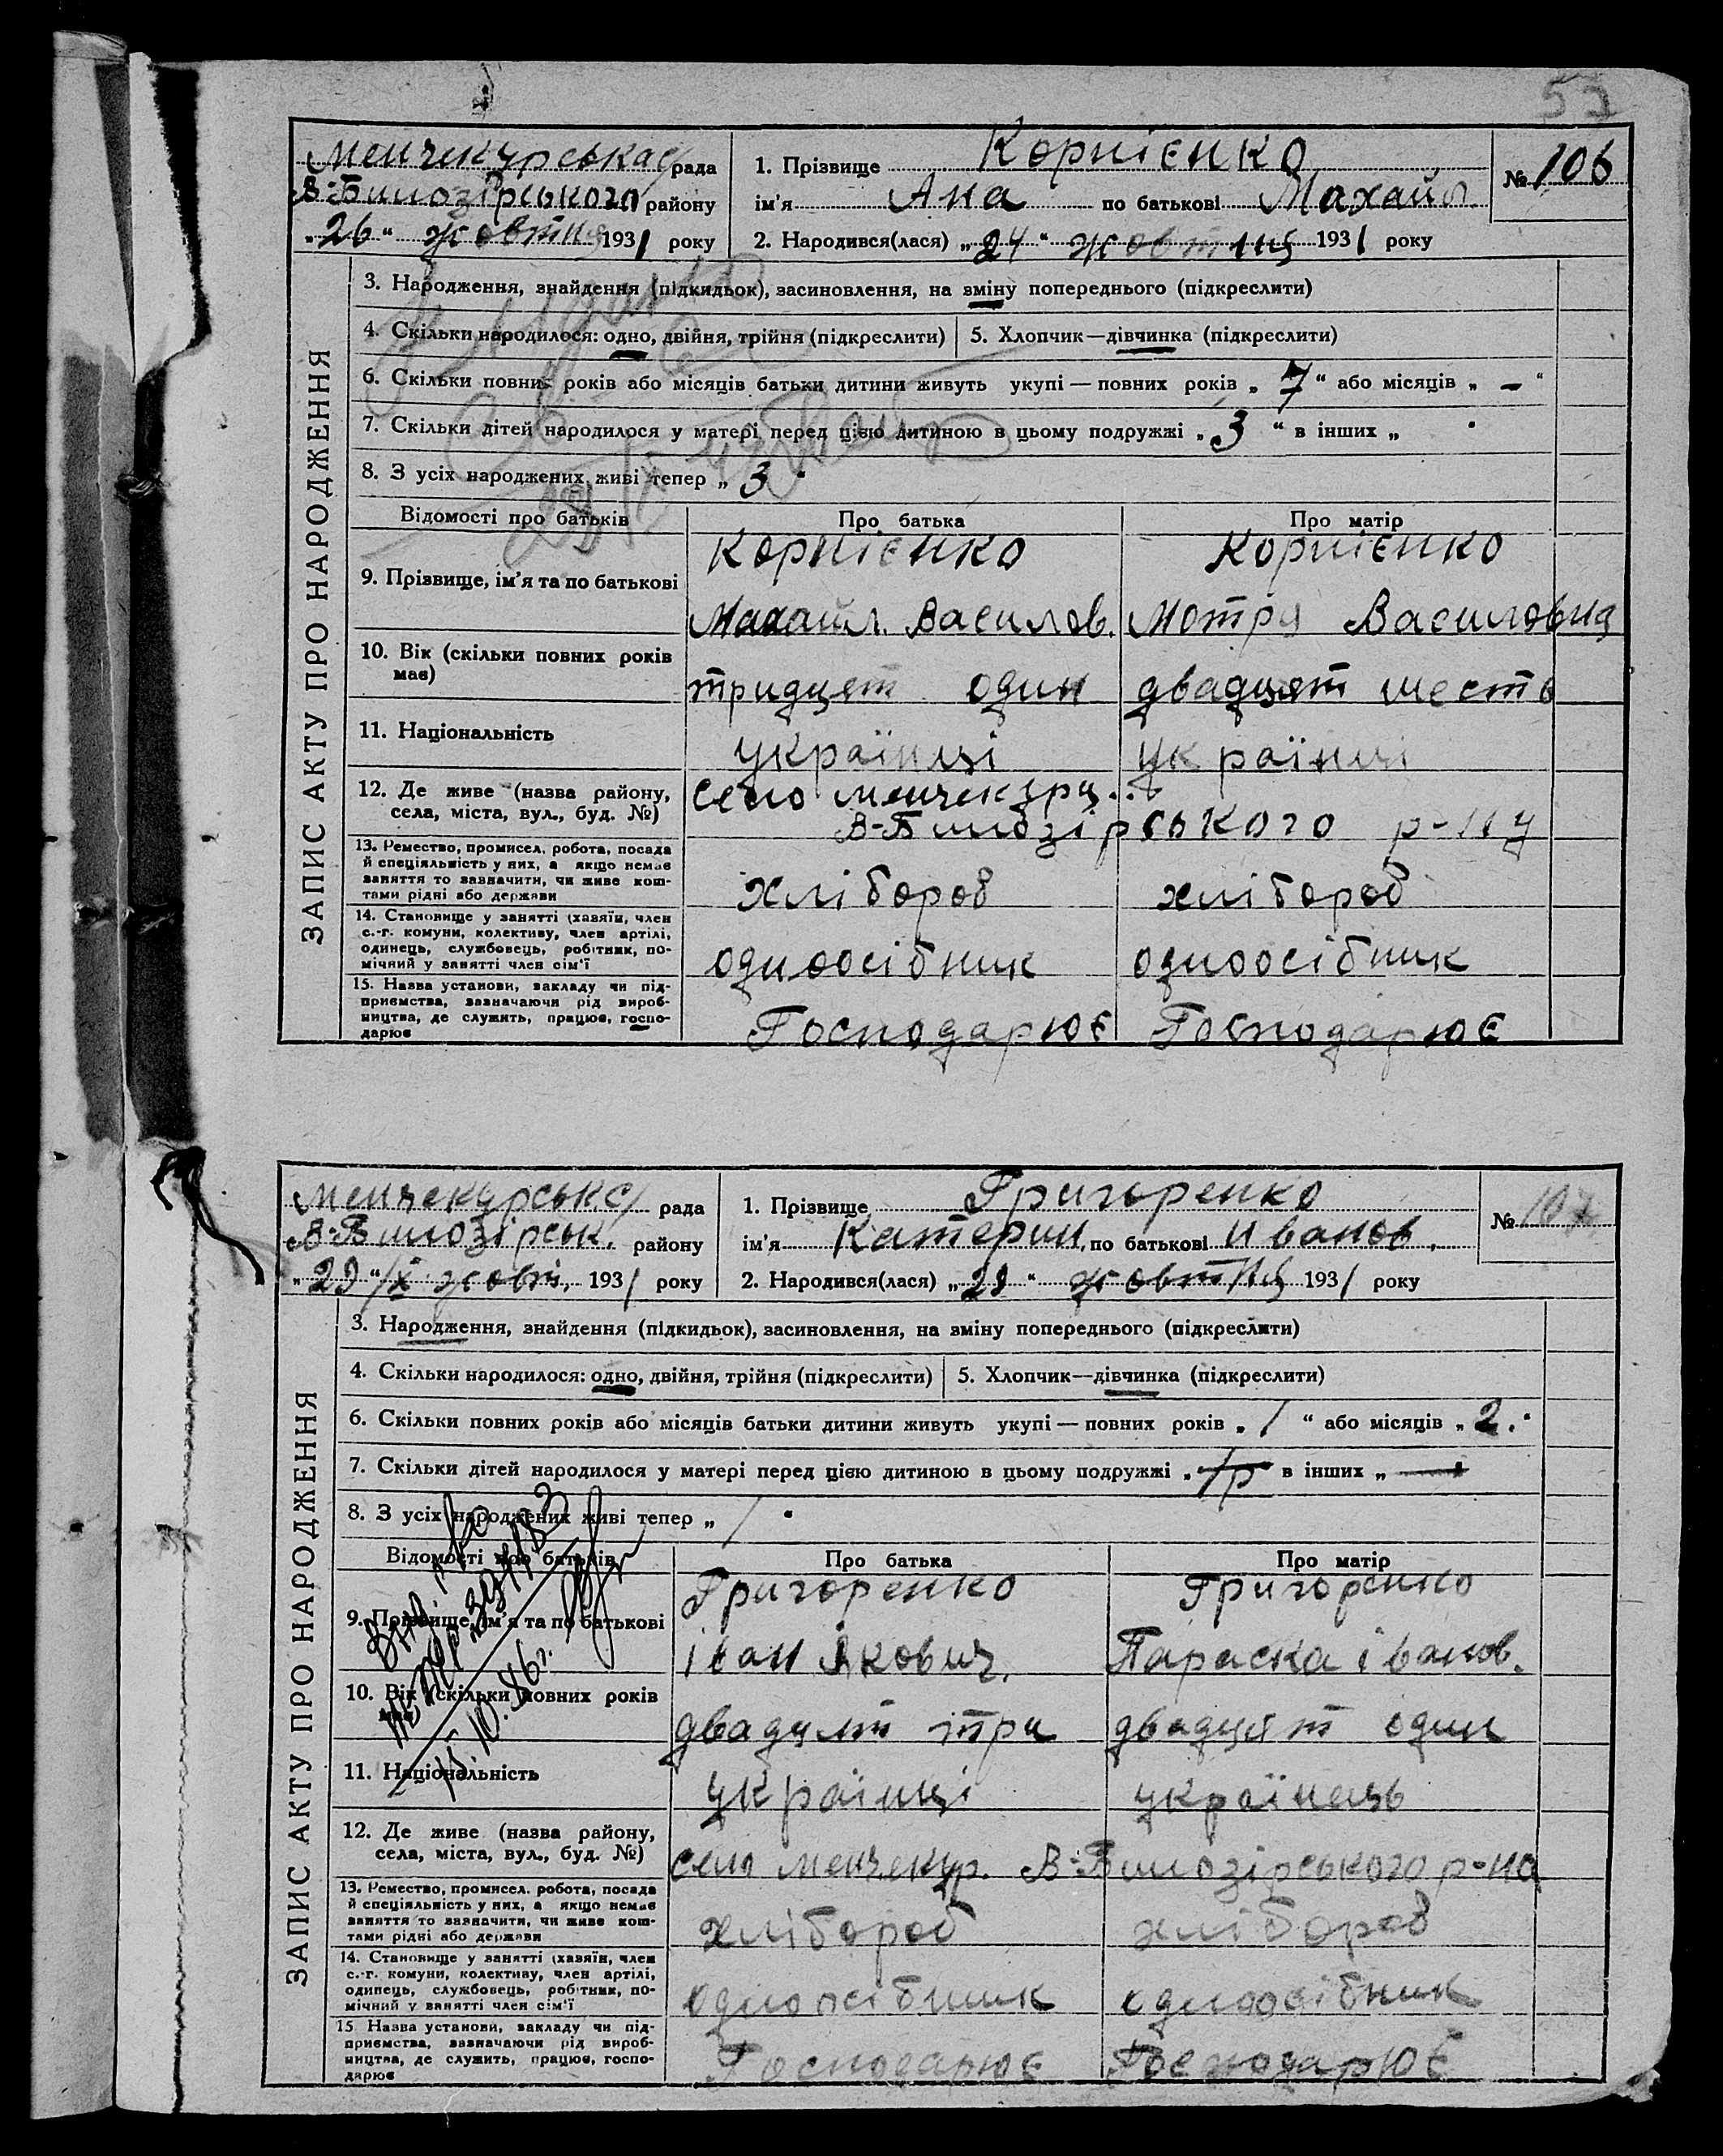 57
Менчекурська с/рада
В-Билозірського району
"26" жовтня 1931 року
1. Прізвище Корнієнко
ім'я Ана по батькові Махайл.
№ 106
2. Народився(лася) „24" жовтня 1931 року
ЗАПИС АКТУ ПРО НАРОДЖЕННЯ
3. Народження, знайдення (підкидьок), засиновлення, на зміну попереднього (підкреслити)
4. Скільки народилося: одно, двійня, трійня (підкреслити) 5. Хлопчик—дівчинка (підкреслити)
6. Скільки повних років або місяців батьки дитини живуть укупі — повних років „ 7 " або місяців „ – "
7. Скільки дітей народилося у матері перед цією дитиною в цьому подружжі „ 3 " в інших „ "
8. З усіх народжених живі тепер „ 3 "
Відомості про батьків Про батька Про матір
9. Прізвище, ім'я та по батькові
Корнієнко Корнієнко
Махайл. Василов. Мотря Василовна
10. Вік (скільки повних років має)
тридцят один двадцят шесть
11. Національність
українці українці
12. Де живе (назва району, села, міста, вул., буд. №)
село Менчекури
В-Билозірського р-ну
13. Ремество, промисел, робота, посада
й спеціяльність у них, а якщо немає
заняття то зазначити, чи живе кош-
тами рідні або держави
хлібороб хлібороб
14. Становище у занятті (хазяїн, член
с.-г. комуни, колективу, член артілі,
одинець, службовець, робітник, по-
мічний у занятті член сім'ї
одноосібник одноосібник
15. Назва установи, закладу чи під-
приємства, зазначаючи рід вироб-
ництва, де служить, працює, госпо-
дарює
Господарює Господарює
Менчекурськ с/ рада
В-Билозірськ. району
"29"/X жовт. 1931 року
1. Прізвище Григоренко
ім'я Катерин. по батькові Иванов.
№ 107
2. Народився(лася) „28" жовтня 1931 року
ЗАПИС АКТУ ПРО НАРОДЖЕННЯ
3. Народження, знайдення (підкидьок), засиновлення, на зміну попереднього (підкреслити)
4. Скільки народилося: одно, двійня, трійня (підкреслити) 5. Хлопчик—дівчинка (підкреслити)
6. Скільки повних років або місяців батьки дитини живуть укупі — повних років „ 1 " або місяців „ 2. "
7. Скільки дітей народилося у матері перед цією дитиною в цьому подружжі „ в інших „ — "
8. З усіх народжених живі тепер „ 1 "
Відомості про батьків Про батька Про матір
9. Прізвище, ім'я та по батькові
Григоренко Григоренко
іван Якович. Параска іванов.
10. Вік (скільки повних років має)
двадцят три двадцят один
11. Національність
українці українець
12. Де живе (назва району, села, міста, вул., буд. №)
село Менчекур. В-Билозірського р-на
13. Ремество, промисел, робота, посада
й спеціяльність у них, а якщо немає
заняття то зазначити, чи живе кош-
тами рідні або держави
хлібороб хлібороб
14. Становище у занятті (хазяїн, член
с.-г. комуни, колективу, член артілі,
одинець, службовець, робітник, по-
мічний у занятті член сім'ї
одноосібник одноосібник
15 Назва установи, закладу чи під-
приємства, зазначаючи рід вироб-
ництва, де служить, працює, госпо-
дарює
Господарює Господарює